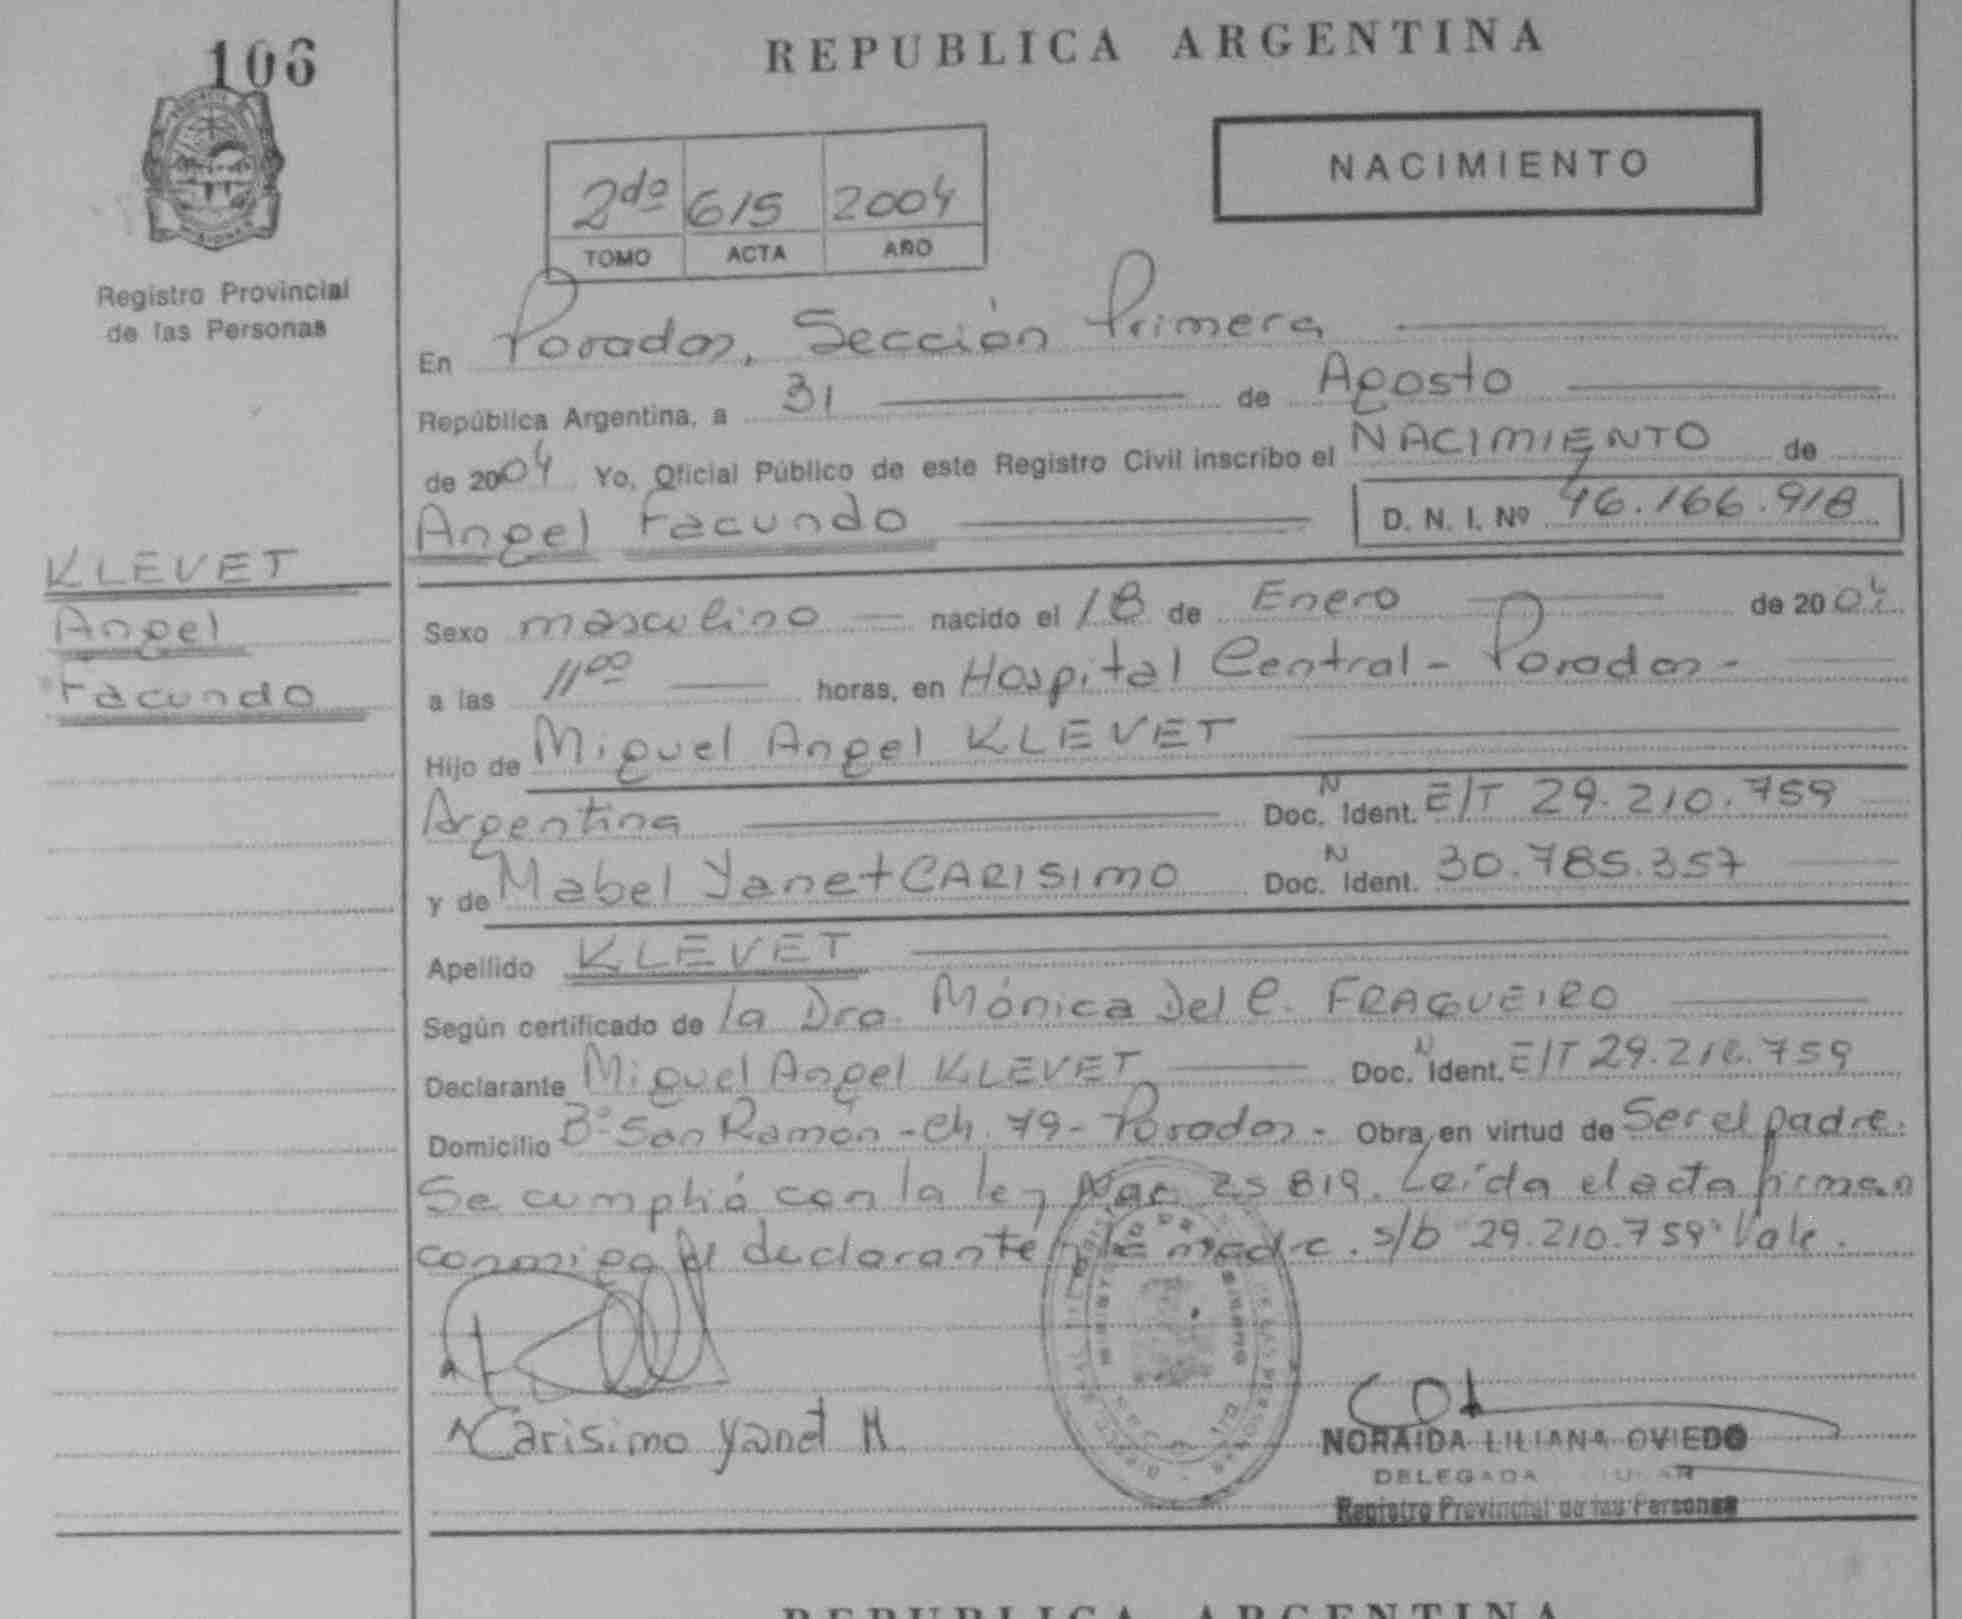 106
REPUBLICA ARGENTINA
NACIMIENTO
2do 615 2004
TOMO ACTA AÑO
Registro Provincial
de las Personas
En Posadas, Sección Primera
República Argentina, a 31 de Agosto
de 2004 Yo, Oficial Público de este Registro Civil inscribo el NACIMIENTO de
Angel Facundo D. N. I. Nº 46.166.918
KLEVET
Angel
Facundo
Sexo masculino nacido el 18 de Enero de 2004
a las 11 00 horas, en Hospital Central - Posadas -
Hijo de Miguel Angel KLEVET
Argentina Doc. N Ident. E/T 29.210.759
y de Mabel Yanet CARISIMO Doc. N Ident. 30.785.357
Apellido KLEVET
Según certificado de la Dra. Mónica Del C. FRAGUEIRO
Declarante Miguel Angel KLEVET Doc. N Ident. E/T 29.210.759
Domicilio Bº San Ramón - Ch. 79 - Posadas - Obra en virtud de Ser el padre.
Se cumplió con la ley Nac 25819. Leída el acta firman
conmigo el declarante y la madre. s/b "29.210.759" Vale.
Carisimo Yanet M
NORAIDA LILIANA OVIEDO
DELEGADA
Registro Provincial de las Personas
REPUBLICA ARGENTINA